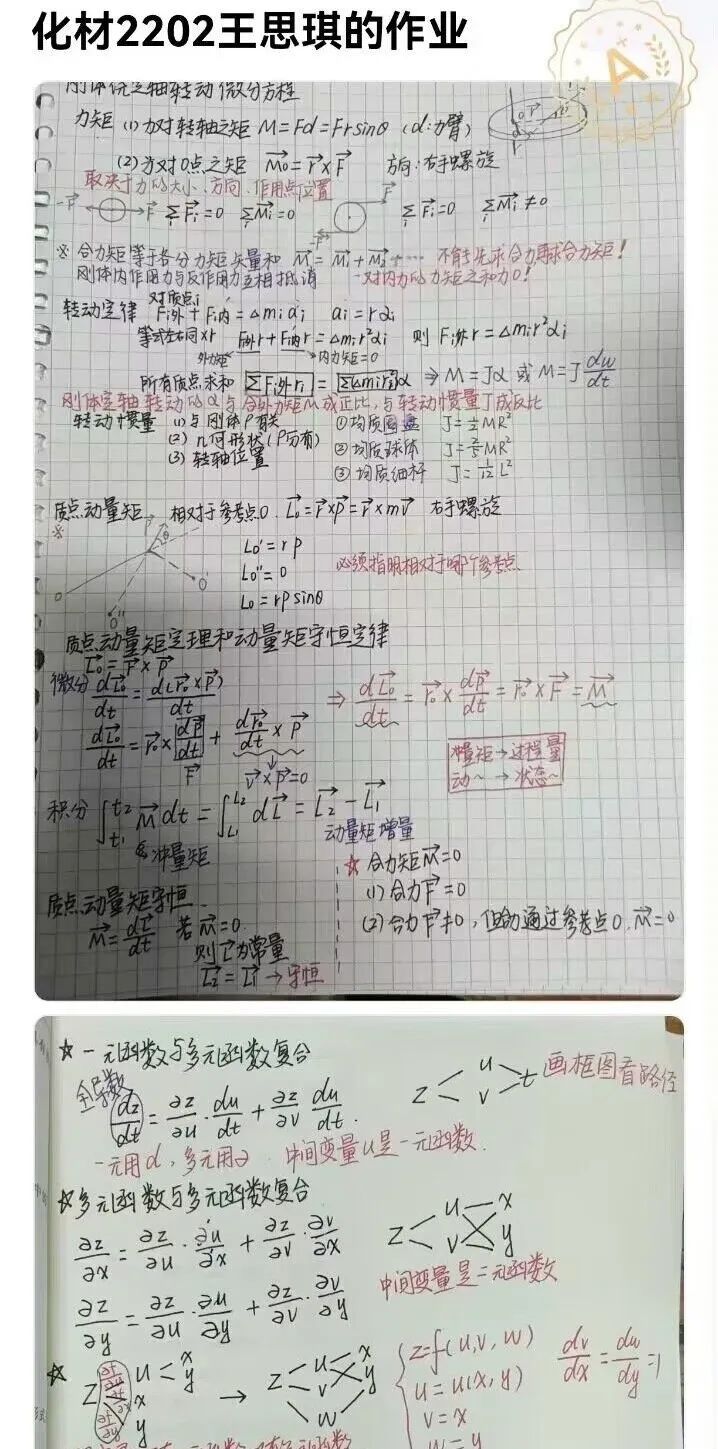 化材2202王思琪的作业
A
刚体绕定轴转动微分方程
力矩 (1) 力对转轴之矩 M=Fd=Frsinθ (d:力臂)
(2) 力对O点之矩 M₀=r×F 方向:右手螺旋
取决于力的大小、方向、作用点位置
-F F ΣFi=0 ΣMi=0 F -F ΣFi=0 ΣMi≠0
※ 合力矩等于各分力矩矢量和 M=M₁+M₂+…… 不能先求合力再求合力矩!
刚体内作用力与反作用力互相抵消 一对内力的力矩之和为0!
对质点i
转动定律 Fi外+Fi内=Δmiai ai=rαi
等式左右同×r Fi外r+Fi内r=Δmir²αi 则 Fi外r=Δmir²αi
外力矩 内力矩=0
所有质点求和 ΣFi外ri=Σ(Δmiri²)α ⇒ M=Jα 或 M=J dw/dt
刚体定轴转动的α与合外力矩M成正比,与转动惯量J成反比
转动惯量 (1) 与刚体ρ有关 ①均质圆盘 J=½MR²
(2) 几何形状(ρ分布) ②均质球体 J=⅖MR²
(3) 转轴位置 ③均质细杆 J=1/12 L²
质点动量矩 相对于参考点O. L₀=r×p=r×mv 右手螺旋
※
L₀'=rp
L₀''=0
L₀=rpsinθ
必须指明相对于哪个参考点
O O' O'' θ
质点动量矩定理和动量矩守恒定律
L₀=r×p
微分 dL₀/dt=d(r₀×p)/dt ⇒ dL₀/dt=r₀×dp/dt=r₀×F=M
dL₀/dt=r₀×dp/dt+dr₀/dt×p
F v×p=0
冲量矩→过程量
动~→状态~
积分 ∫t₁t₂ M dt=∫L₁L₂ dL=L₂-L₁
冲量矩 动量矩增量
☆ 合力矩M=0
(1) 合力F=0
(2) 合力F≠0,但力通过参考点O.M=0
质点动量矩守恒
M=dL/dt 若M=0
则L为常量
L₂=L₁→守恒
☆ 一元函数与多元函数复合
全导数
dz/dt=∂z/∂u·du/dt+∂z/∂v du/dt.
z u v t 画框图看路径
一元用d,多元用∂. 中间变量u是一元函数.
☆多元函数与多元函数复合
∂z/∂x=∂z/∂u·∂u/∂x+∂z/∂v·∂v/∂x
z u v x y
中间变量是二元函数
∂z/∂y=∂z/∂u·∂u/∂y+∂z/∂v·∂v/∂y
☆
z u x y x y → z u v w x y
z=f(u,v,w)
u=u(x,y)
v=x
w=y
dv/dx=dw/dy=1